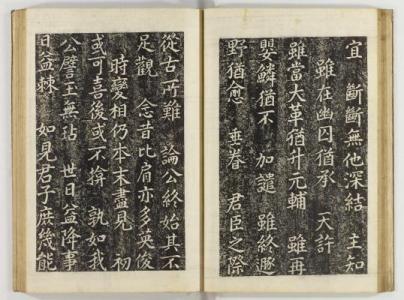 宜　斷斷無他深結　主知
雖在幽囚猶承　天許
雖當大革猶升元輔　雖再
嬰鱗猶不　加譴　雖終遯
野猶愈　垂眷　君臣之際
從古所難　論公終始其不
足觀　念昔比肩亦多英俊
時變相仍本末盡見　初
或可喜後或不揜　孰如我
公譬玉無玷　世日益降事
日益棘　如見君子庶幾能